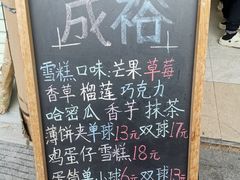 成裕
雪糕口味:芒果草莓
香草 榴莲 巧克力
哈密瓜 香芋 抹茶
薄饼夹单球13元双球17元
鸡蛋仔雪糕18元
蛋筒单小球6元双球13元